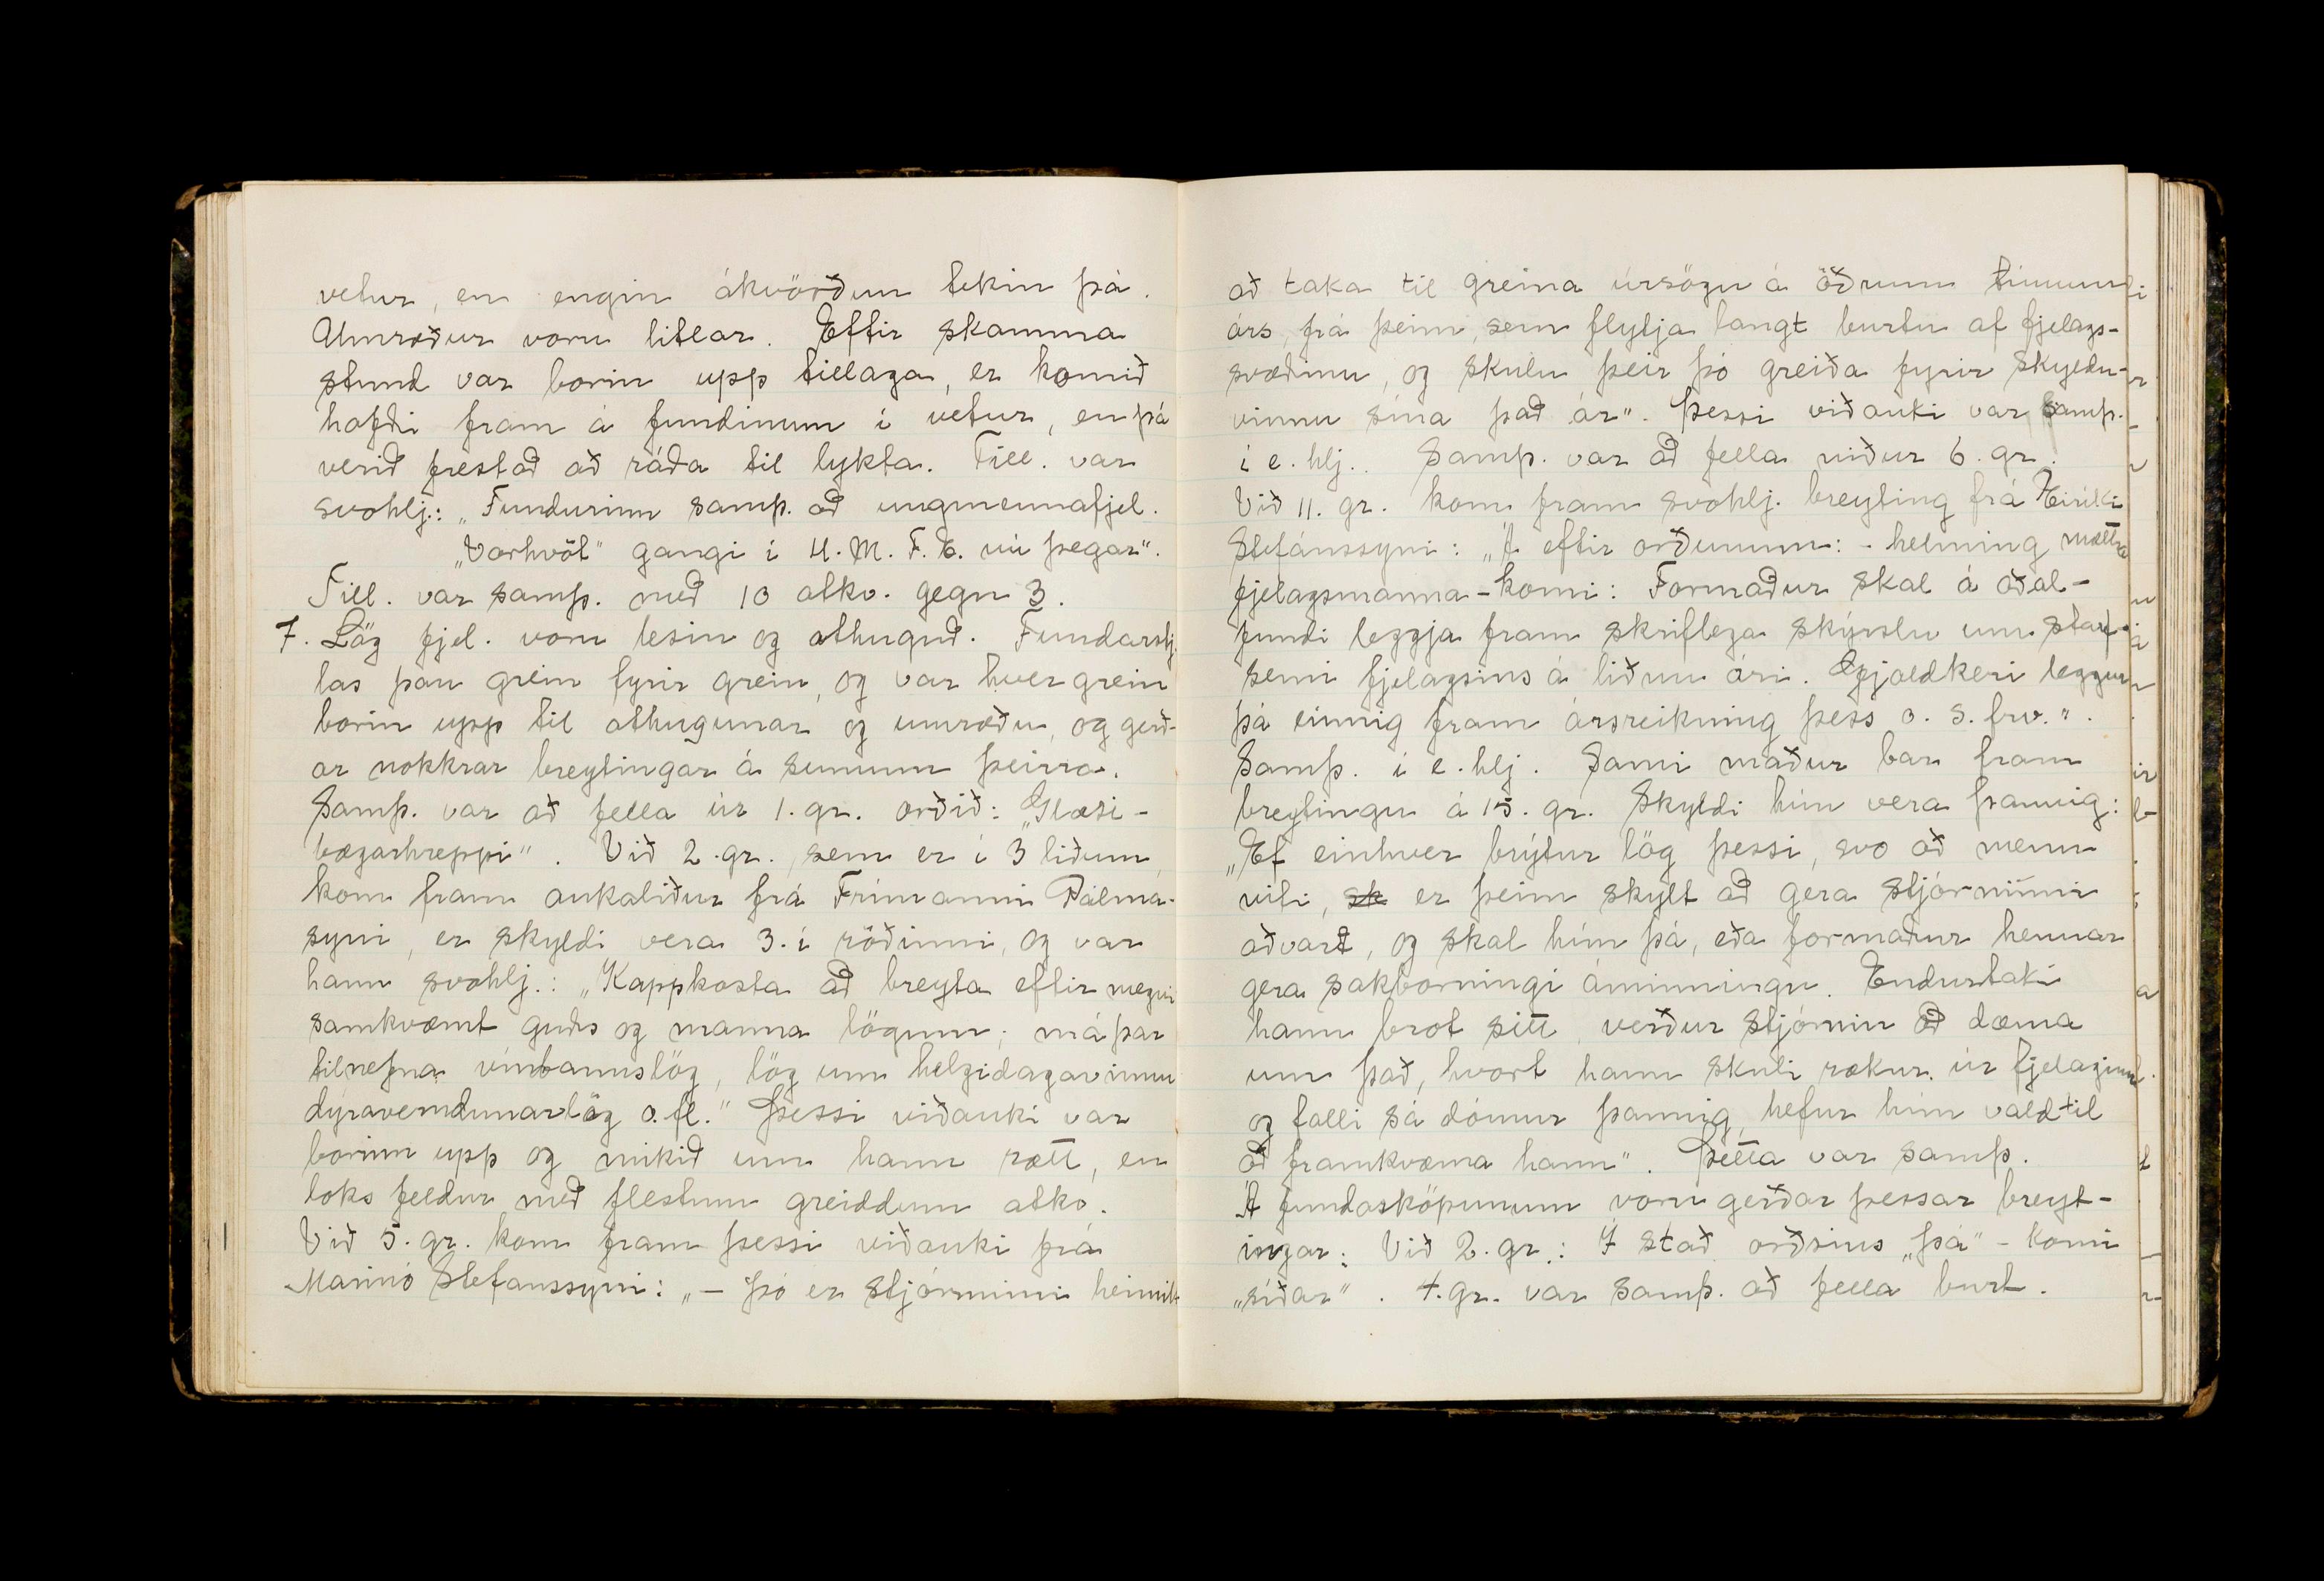 vetur, en engin ákvörðun tekin þá.
Umræður voru litlar. Eftir skamma
stund var borin upp tillaga, er komið
hafði fram á fundinum í vetur, en þá
verið frestað að ráða til lykta. Till. var
svohlj.: „Fundurinn samþ. að ungmennafjel.
„Vorhvöt" gangi í U.M.F.E. nú þegar".
Till. var samþ. með 10 atkv. gegn 3.
7. Lög fjel. voru lesin og athuguð. Fundarstj.
las þau grein fyrir grein, og var hver grein
borin upp til athugunar og umræðu, og gerð-
ar nokkrar breytingar á sumum þeirra.
Samþ. var að fella úr 1. gr. orðið: „Glæsi-
bæjarhreppi". Við 2. gr., sem er í 3 liðum,
kom fram aukaliður frá Frímanni Pálma-
syni, er skyldi vera 3. í röðinni, og var
hann svohlj.: „Kappkosta að breyta eftir megni
samkvæmt guðs og manna lögum; má þar
tilnefna vínbannslög, lög um helgidagavinnu
dýraverndunarlög o.fl." Þessi viðauki var
borinn upp og mikið um hann rætt, en
loks feldur með flestum greiddum atkv.
Við 5. gr. kom fram þessi viðauki frá
Marinó Stefanssyni: „— Þó er stjórninni heimilt
að taka til greina úrsögn á öðrum tímum
árs, frá þeim, sem flytja langt burtu af fjelags-
svæðinu, og skulu þeir þó greiða fyrir skyldu-
vinnu sína það ár". Þessi viðauki var samþ.
í e. hlj.. Samþ. var að fella niður 6. gr.
Við 11. gr. kom fram svohlj. breyting frá Eiríki
Stefánssyni: „Á eftir orðunum: - helming mættra
fjelagsmanna - komi: Formaður skal á aðal-
fundi leggja fram skriflega skýrslu um starf-
semi fjelagsins á liðnu ári. Gjaldkeri leggur
þá einnig fram ársreikning þess o. s. frv.".
Samþ. í e. hlj. Sami maður bar fram
breytingu á 15. gr. Skyldi hún vera þannig:
„Ef einhver brýtur lög þessi, svo að menn
viti, sk er þeim skylt að gera stjórninni
aðvart, og skal hún þá, eða formaður hennar
gera sakborningi áminningu. Endurtaki
hann brot sitt, verður stjórnin að dæma
um það, hvort hann skuli rækur úr fjelaginu
og falli sá dómur þannig, hefur hún vald til
að framkvæma hann". Þetta var samþ.
Á fundasköpunum voru gerðar þessar breyt-
ingar: Við 2. gr.: Í stað orðsins „þá" - komi
„síðar". 4. gr. var samþ. að fella burt.